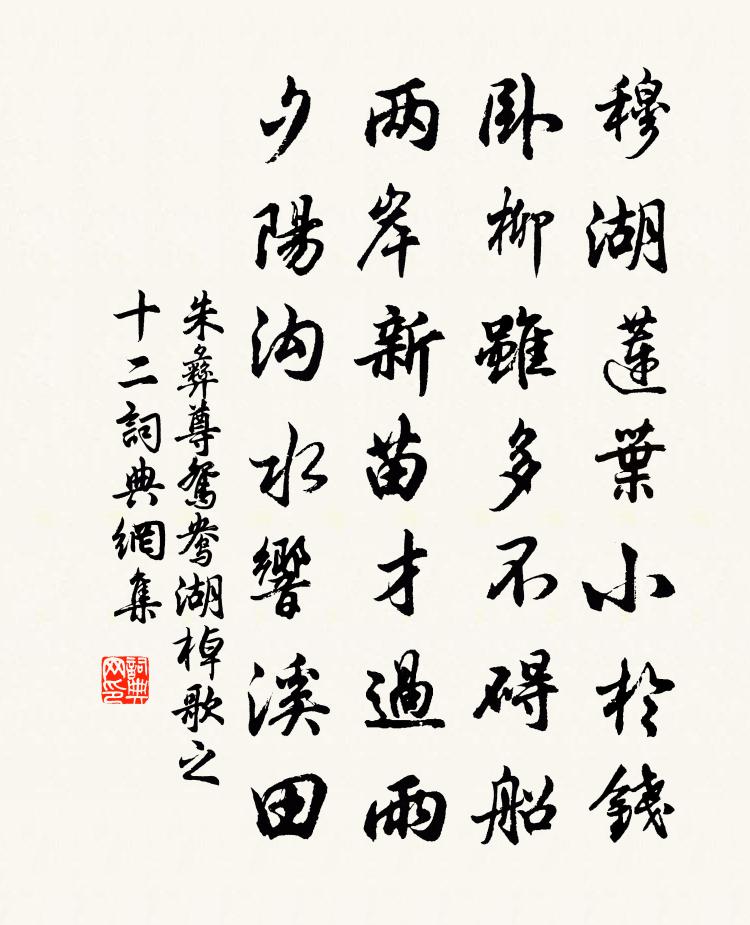 穆湖蓮葉小於錢
卧柳雖多不碍船
两岸新苗才過雨
夕陽沟水響溪田
朱彝尊鴛鴦湖棹歌之
十二詞典網集
詞典网印